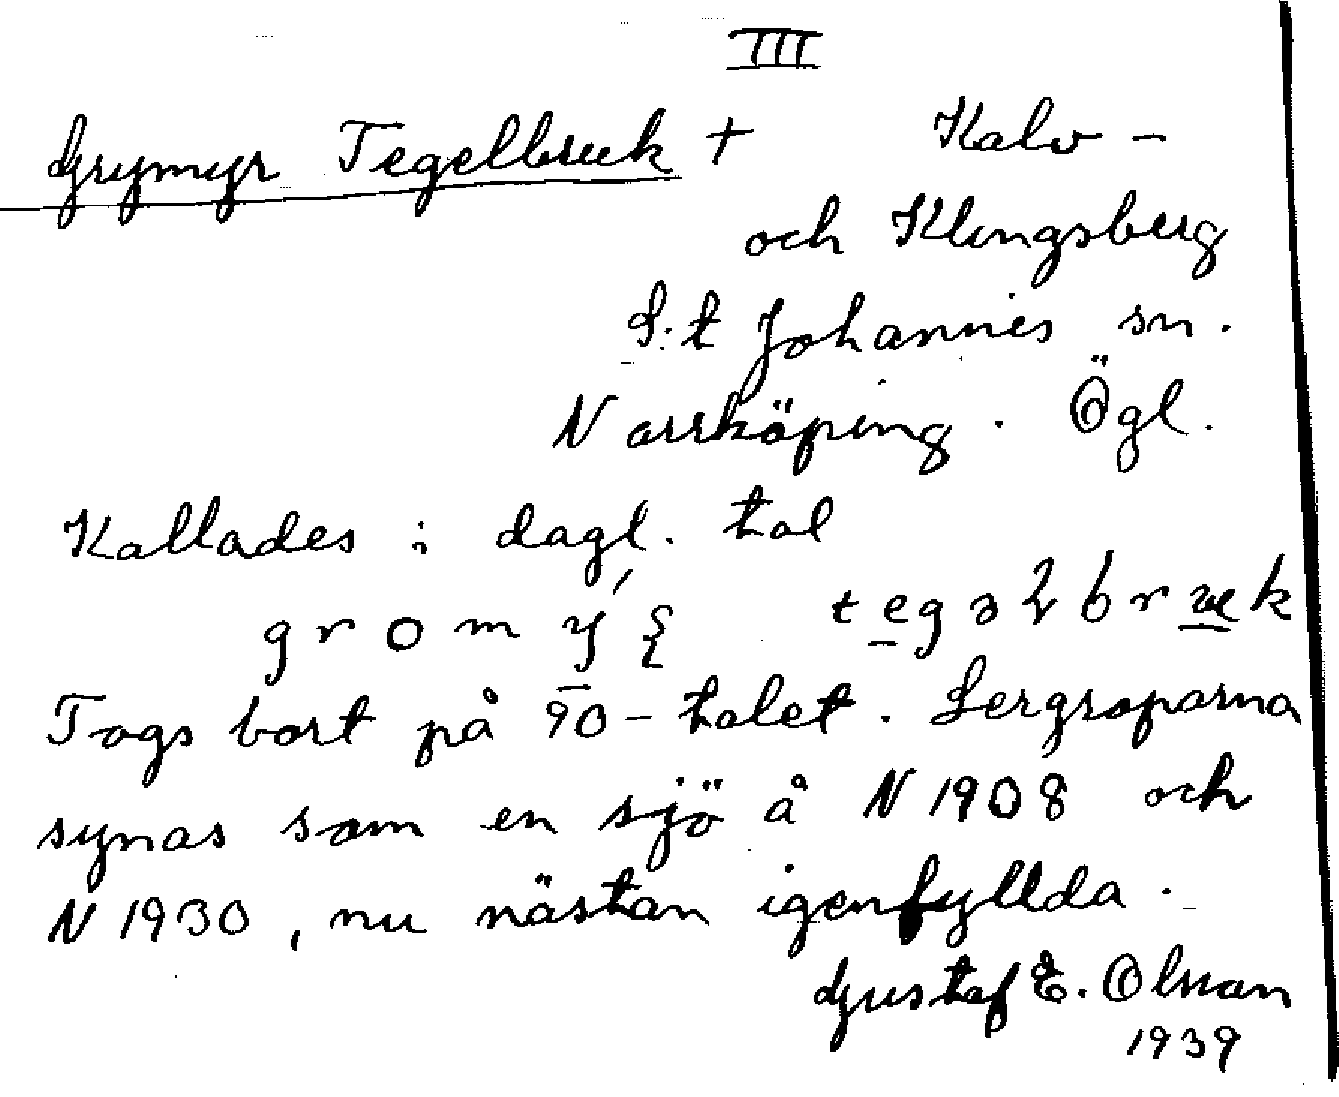 III
Grymyr Tegelbruk + Kalv -
och Klingsberg
S:t Johannes sn.
Norrköping. Ögl.
Kallades i dagl. tal
Togs bort på 90-talet. Lergroparna
synas som en sjö å N 1908 och
N 1930, nu nästan igenfyllda.
Gustaf E. Olson
1939